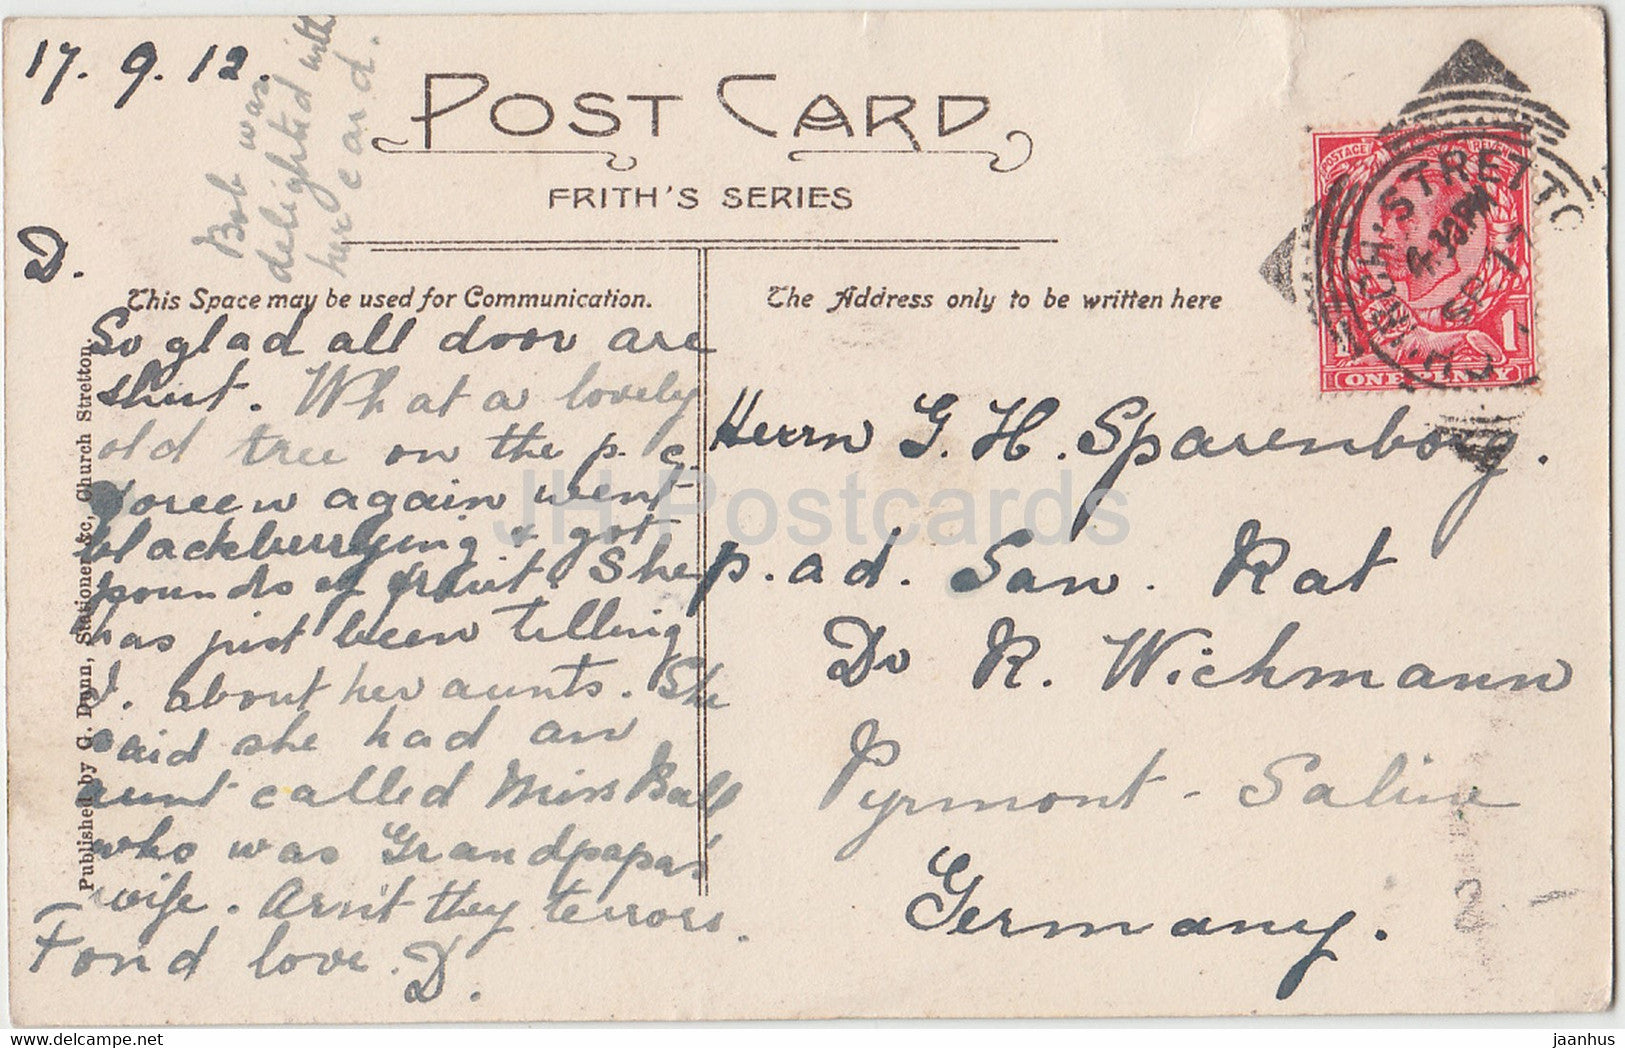 17. 9. 12.
Bob was
delighted with
her card.
POST CARD
FRITH'S SERIES
D.
This Space may be used for Communication.
The Address only to be written here
So glad all door are
shut. What a lovely
old tree on the p. c.
again went
blackberrying & got
pounds of fruit. She
has just been telling
I. about her aunts. She
said she had an
aunt called Miss Ball
who was Grandpapa's
wife. Arn't they terrors.
Fond love. D.
Herrn G. H. Sparenborg.
p. ad. San. Rat
Dr R. Wichmann
Pyrmont - Saline
Germany.
Published by G. Dunn, Stationer &c, Church Stretton.
POSTAGE REVENUE
1 1
ONE PENNY
CHURCH. STRETTO
4.30PM
SP 17
JH Postcards
jaanhus